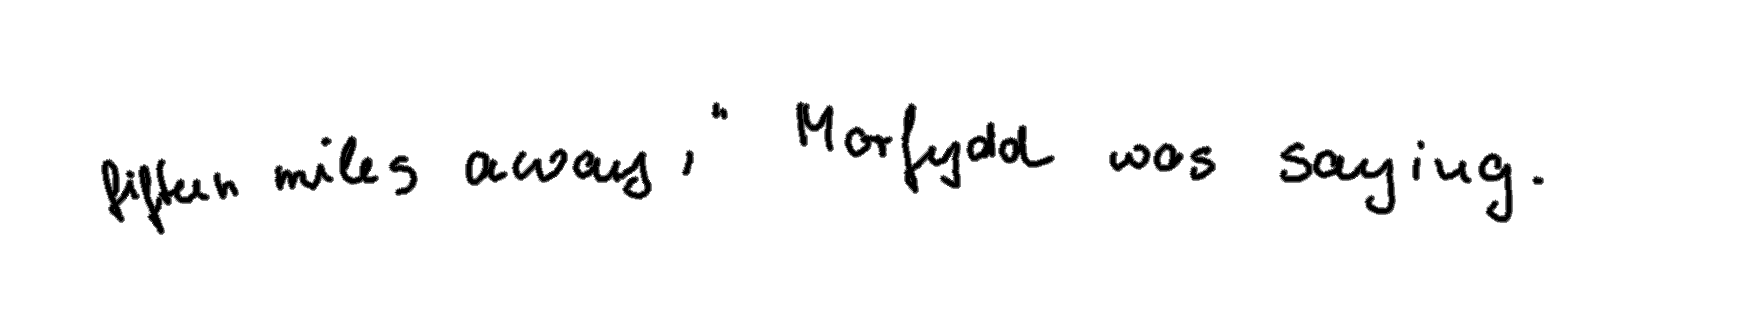 fifteen miles away," Morfydd was saying.